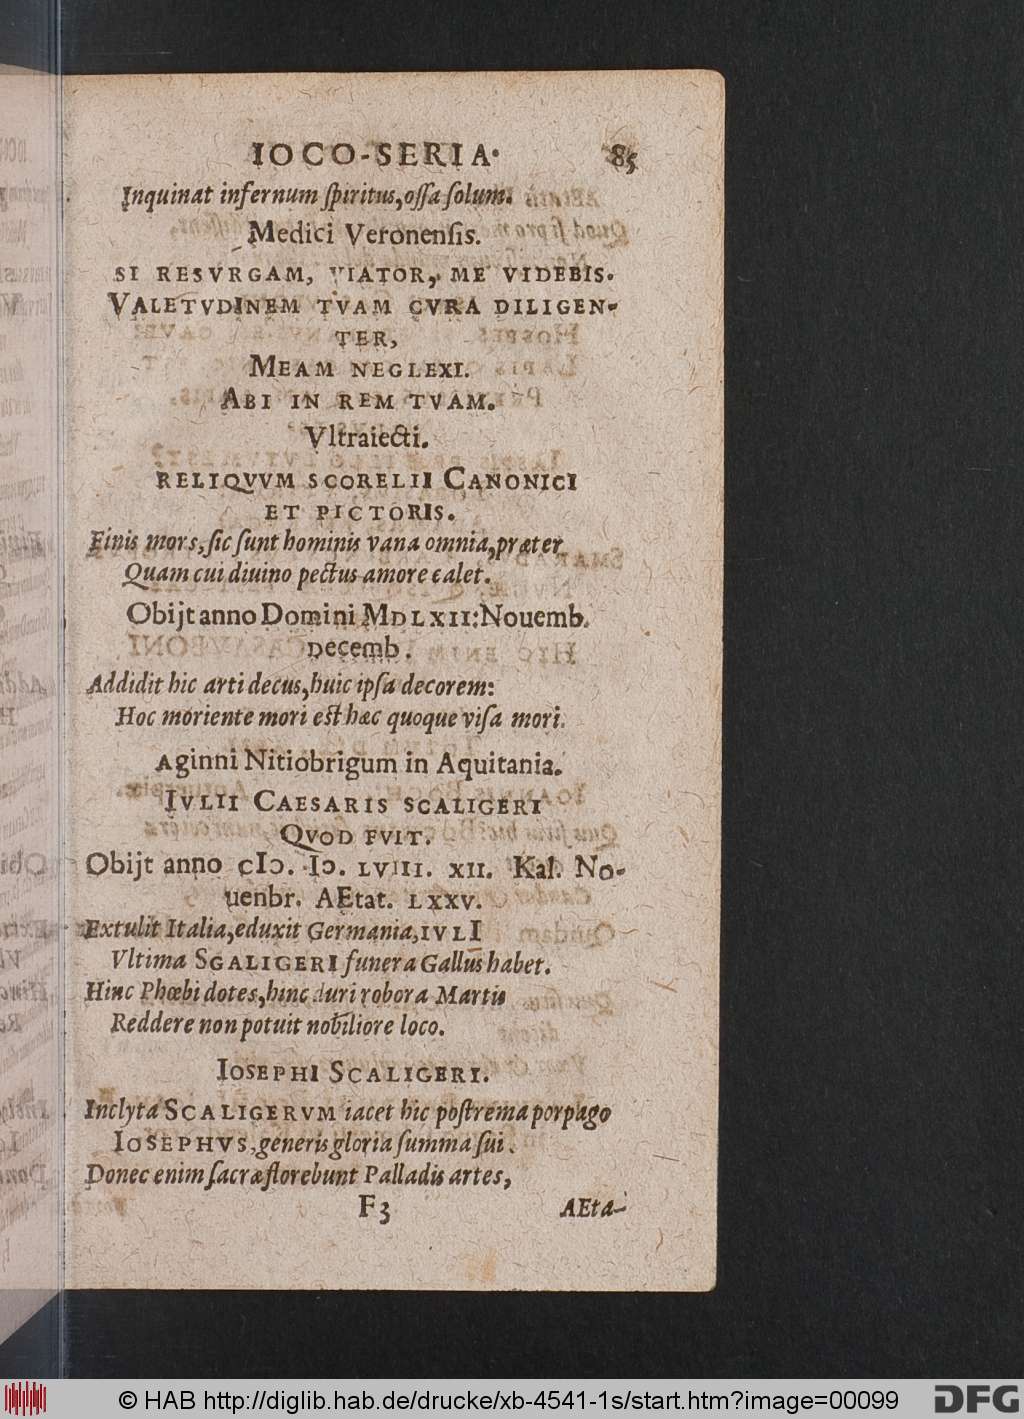 IOCO-SERIA. 85
Inquinat infernum ſpiritus, oſſa ſolum.
Medici Veronenſis.
SI RESVRGAM, VIATOR, ME VIDEBIS.
VALETVDINEM TVAM CVRA DILIGEN-
TER,
MEAM NEGLEXI.
ABI IN REM TVAM.
Vltraiecti.
RELIQVVM SCORELII CANONICI
ET PICTORIS.
Finis mors, ſic ſunt hominis vana omnia, præter
Quam cui diuino pectus amore calet.
Obijt anno Domini MDLXII: Nouemb.
Decemb.
Addidit hic arti decus, huic ipſa decorem:
Hoc moriente mori eſt hæc quoque viſa mori.
Aginni Nitiobrigum in Aquitania.
IVLII CAESARIS SCALIGERI
QVOD FVIT.
Obijt anno cIↄ. Iↄ. LVIII. XII. Kal. No-
uenbr. AEtat. LXXV.
Extulit Italia, eduxit Germania, IVLI
Vltima SGALIGERI funera Gallus habet.
Hinc Phœbi dotes, hinc duri robora Martis
Reddere non potuit nobiliore loco.
IOSEPHI SCALIGERI.
Inclyta SCALIGERVM iacet hic poſtrema porpago
IOSEPHVS, generis gloria ſumma ſui.
Donec enim ſacræ florebunt Palladis artes,
F3 AEta-
© HAB http://diglib.hab.de/drucke/xb-4541-1s/start.htm?image=00099 DFG